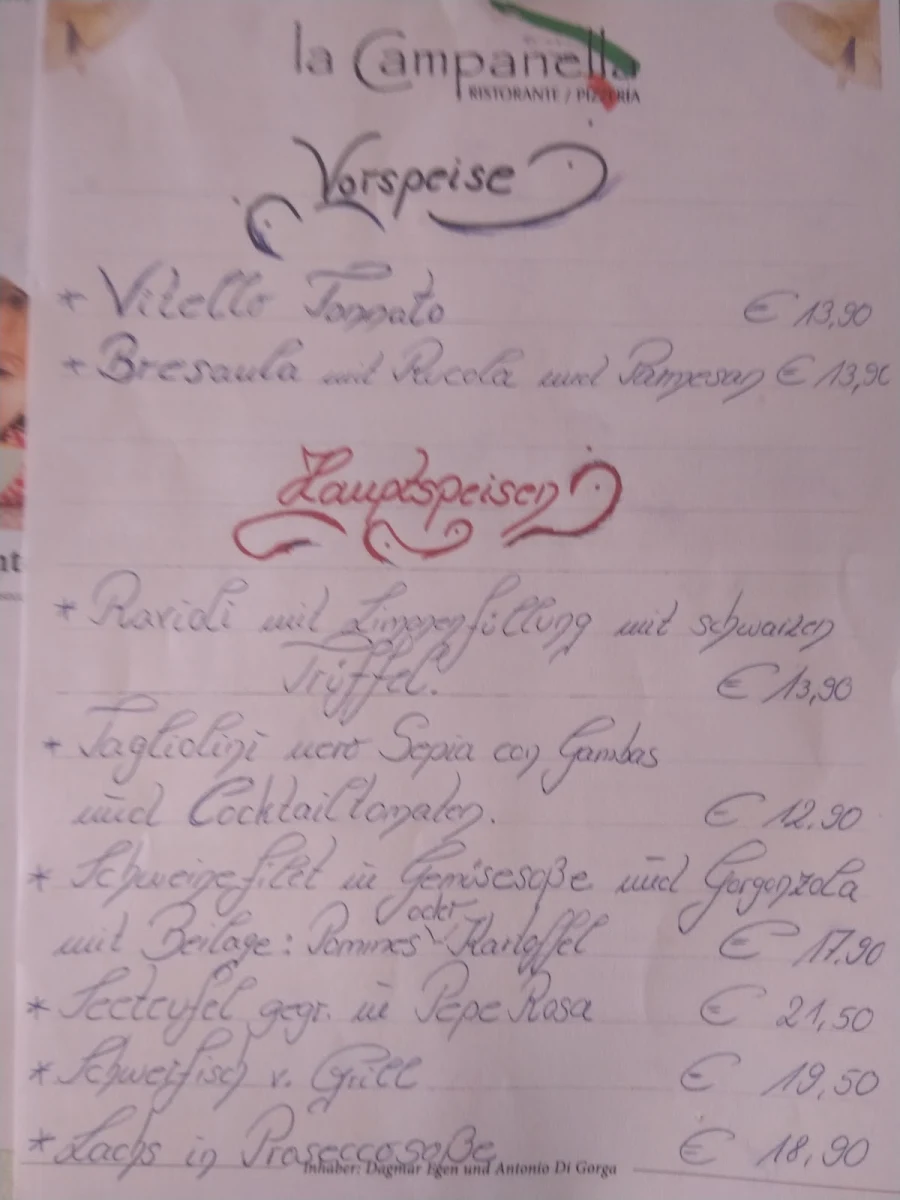 la Campanella
RISTORANTE / PIZZERIA
Vorspeise
* Vitello Tonnato € 13,90
* Bresaula mit Rucola und Parmesan € 13,90
Hauptspeisen
* Ravioli mit Limonenfüllung mit schwarzen
Trüffel. € 13,90
* Tagliolini nero Sepia con Gambas
und Cocktailtomaten. € 12,90
* Schweinefilet in Gemüsesoße und Gorgonzola
oder
mit Beilage: Pommes Kartoffel € 17.90
* Seeteufel gegr. in Pepe Rosa € 21,50
* Schwertfisch v. Grill € 19,50
* Lachs in Proseccosoße € 18,90
Inhaber: Dagmar Egen und Antonio Di Gorga